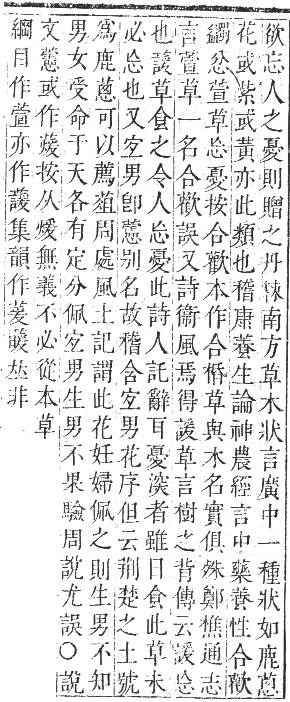 欲忘人之憂則贈之丹棘南方草木狀言廣中一種狀如鹿蔥
花或紫或黃亦此類也嵇康養生論神農經言中藥養性合歡
蠲忿萱草忘憂按合歡本作合㫺草與木名實俱殊鄭樵通志
言萱草一名合歡誤又詩衞風焉得諼草言樹之背傳云諼忘
也諼草食之令人忘憂此詩人託辭耳憂深者雖日食此草未
必忘也又宐男卽藼别名故嵇含宐男花序但云荆楚之土號
爲鹿蔥可以薦葅周處風土記謂此花妊婦佩之則生男不知
男女受命于天各有定分佩宐男生男不果驗周說尤誤○說
文藼或作蕿按从煖無義不必從本草
綱目作萱亦作諼集韻作蕿蕿𠀤非